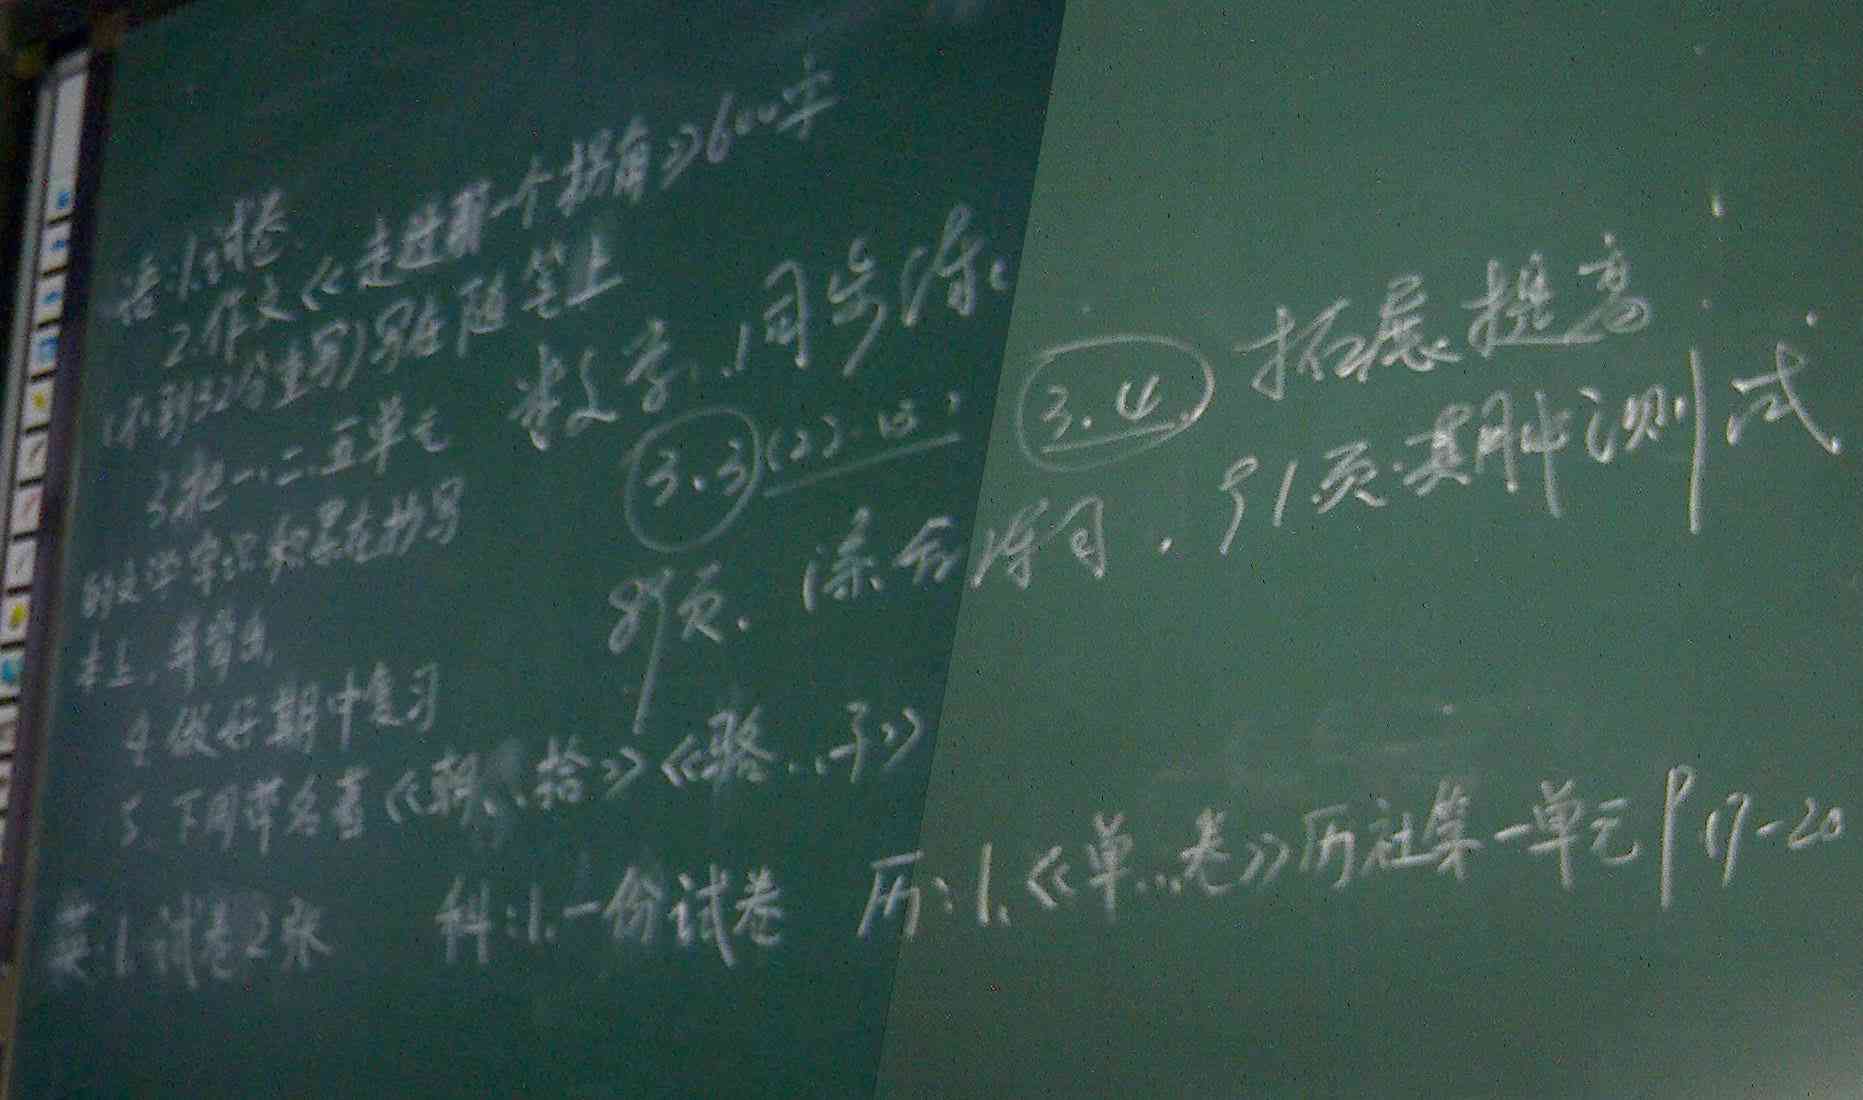 语:1.试卷
2.作文《走进那一个拐角》600字
(不到32分重写)写在随笔上
3.把一、二、五单元
的文学常识积累在抄写
本上,并背出
4.做好期中复习
5.下周带名著《朝…拾》《骆…子》
英:1.试卷2张
数学:1.同步练:
3.3(2)
3.4 拓展提高
89页.综合练习.91页.期中测试
科:1.一份试卷
历:1.《单…卷》历社第一单元P17-20